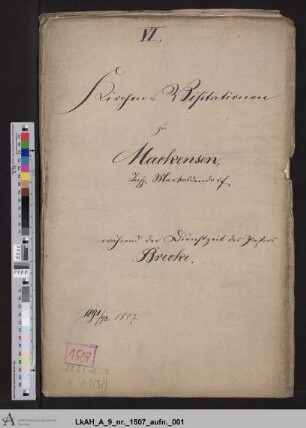 VI.
Kirchen-Visitationen
zu
Mackensen,
Insp. Markoldendorf
während der Dienstzeit des Pastors
Brecke.
1507
LkAH_A_9_nr._1507_aufn._001